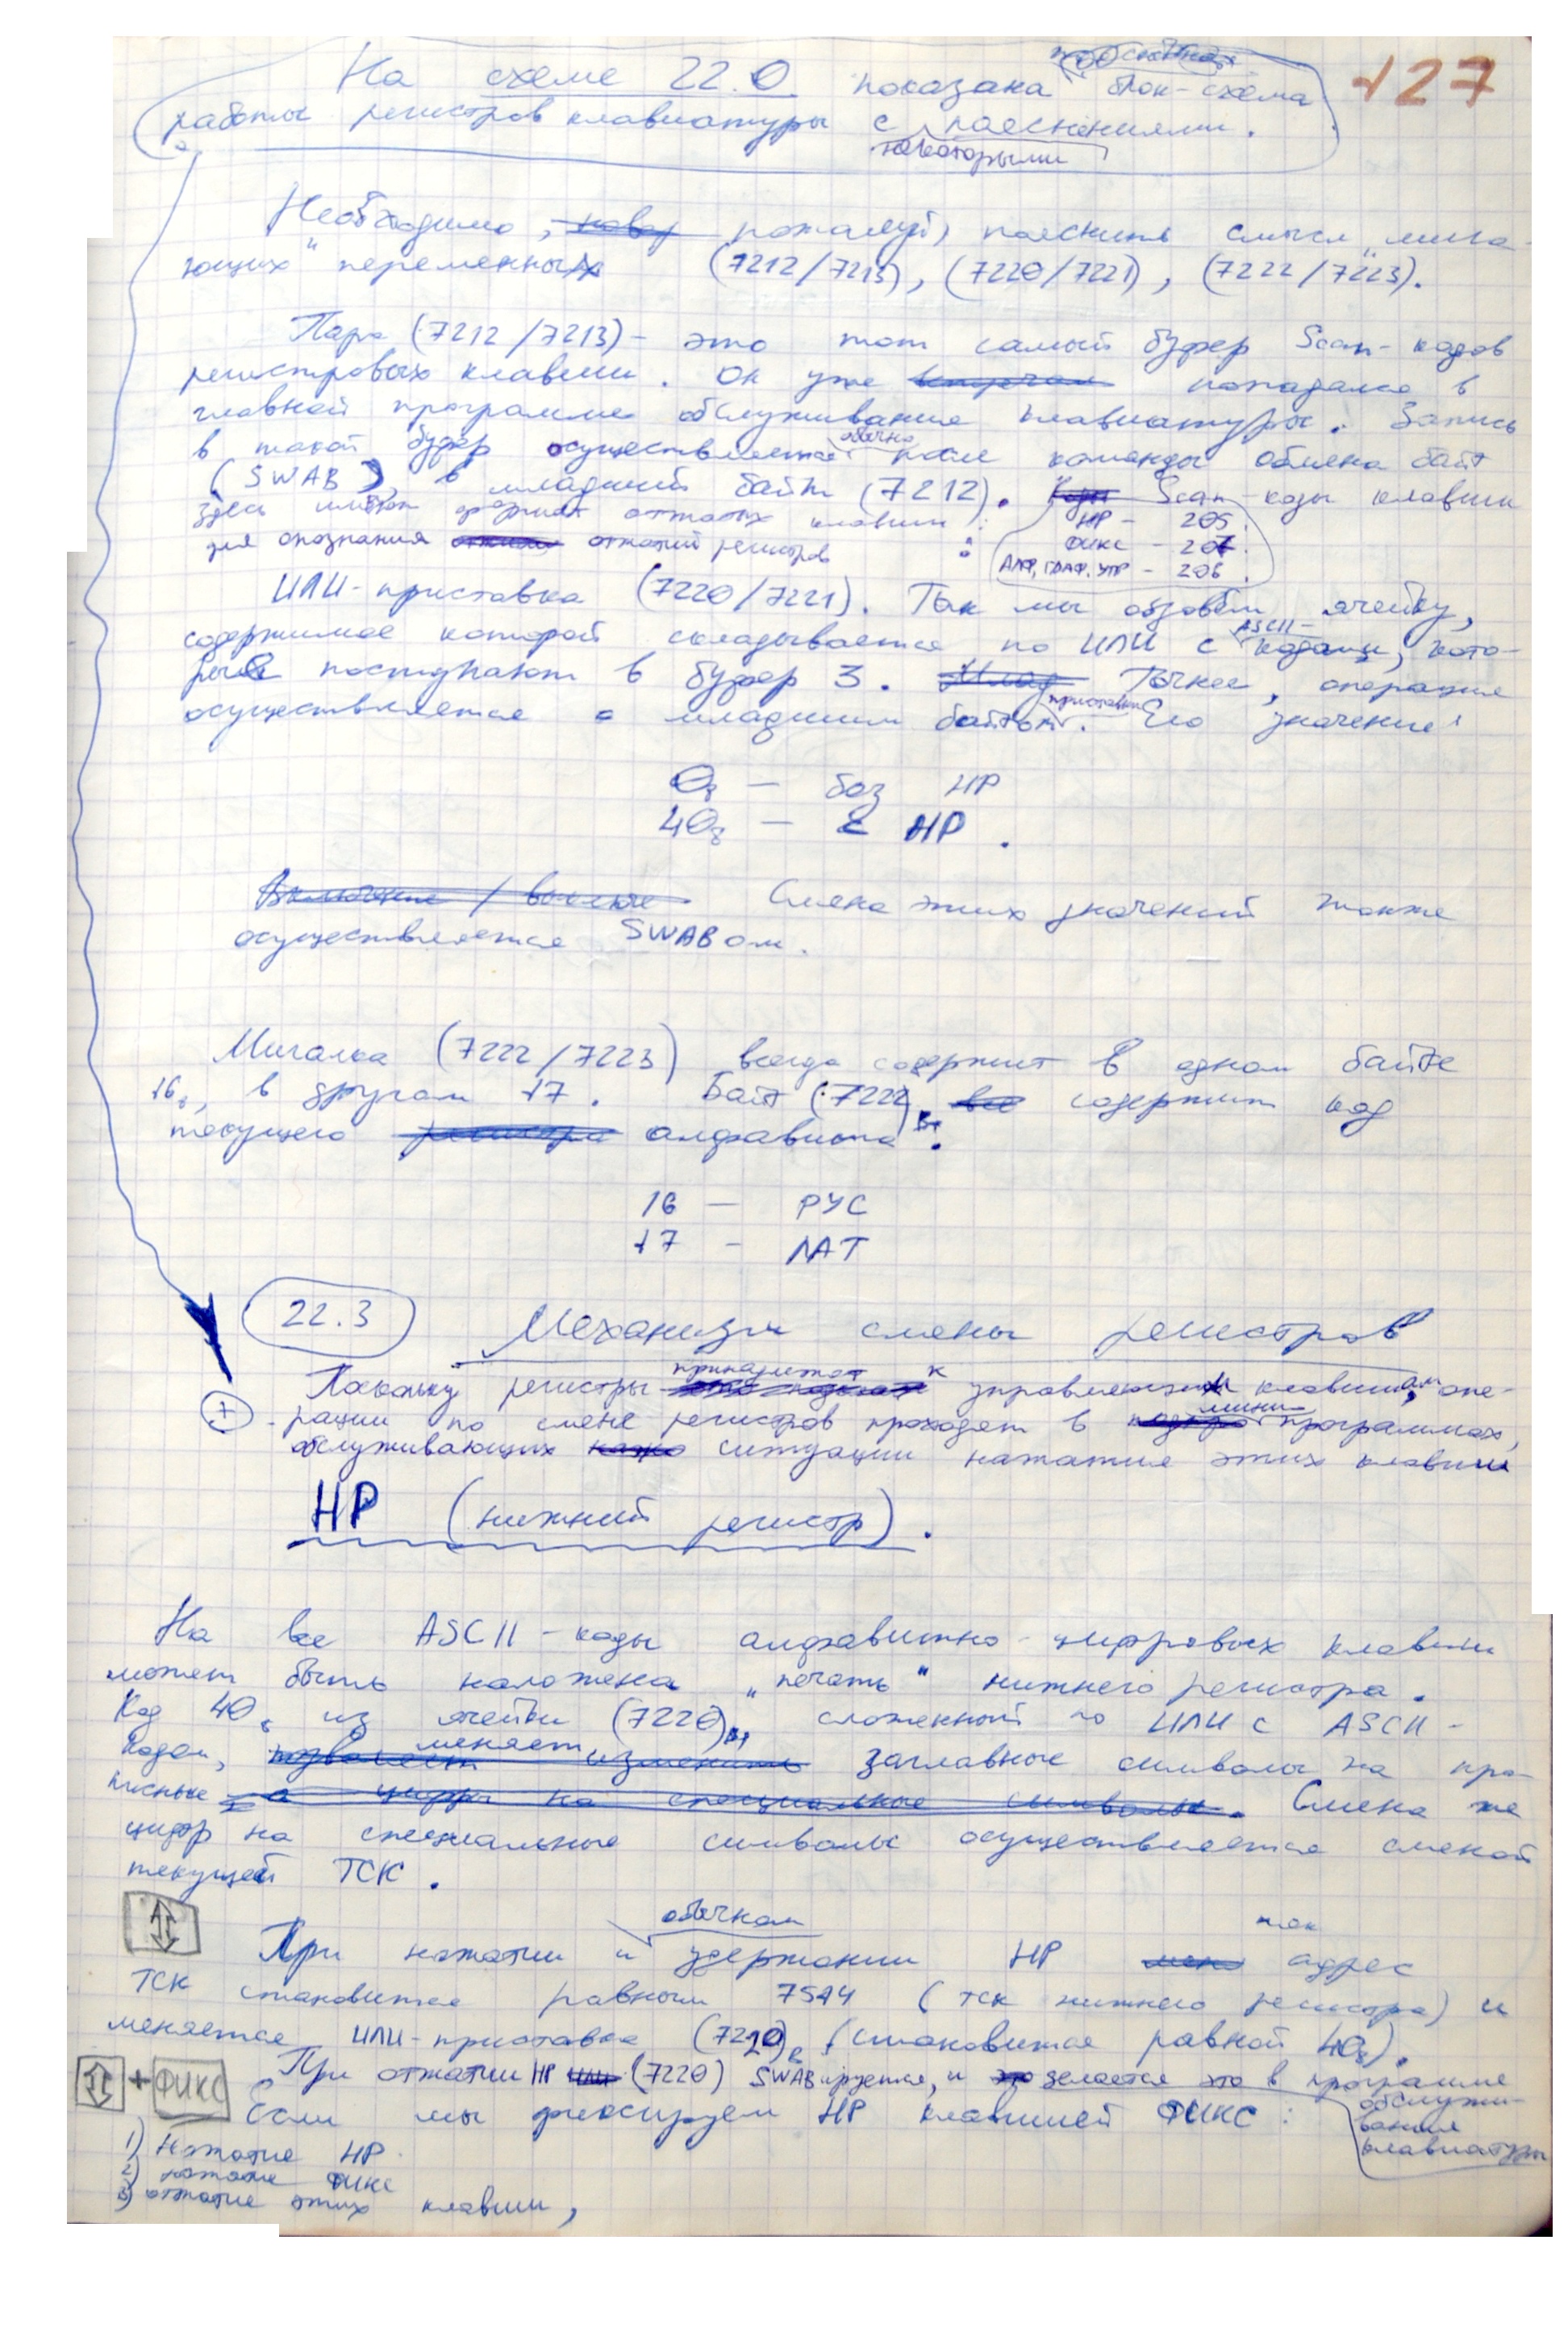 127
На схеме 22.0 показана блок-схема
работы регистров клавиатуры с некоторыми пояснениями.
Необходимо, пожалуй, пояснить смысл „мига-
ющих" переменных (7212/7213), (7220/7221), (7222/7223).
Пара (7212/7213) - это тот самый буфер Scan-кодов
регистровых клавиш. Он уже попадался в
главной программе обслуживания клавиатуры. Запись
в такой буфер осуществляется обычно после команды обмена байт
(SWAB), в младший байт (7212). Scan-коды клавиш
здесь имеют формат отжатых клавиш:
для опознания отжатий регистров :
НР - 205.
ФИКС - 204.
АЛФ, ГРАФ, УПР - 206.
ИЛИ-приставка (7220/7221). Так мы обзовём ячейку,
содержимое которой складывается по ИЛИ с ASCII-кодами, кото-
рые поступают в буфер 3. Точнее, операция
осуществляется с младшим байтом приставки. Его значения:
0₈ — без НР
40₈ — с НР.
Смена этих значений также
осуществляется SWABом.
Мигалка (7222/7223) всегда содержит в одном байте
16₈, в другом 17. Байт (7222)Вт содержит код
текущего алфавита.
16 — РУС
17 - ЛАТ
22.3 Механизм смены регистров
Поскольку регистры принадлежат к управляющим клавишам, опе-
рации по смене регистров проходят в мини-программах,
обслуживающих ситуации нажатия этих клавиш
НР (нижний регистр).
На все ASCII-коды алфавитно-цифровых клавиш
может быть наложена „печать" нижнего регистра.
Код 40₈ из ячейки (7220)Вт, сложенный по ИЛИ с ASCII-
кодом, меняет заглавные символы на про-
писные. Смена же
цифр на специальные символы осуществляется сменой
текущей ТСК.
При нажатии и обычном удержании НР адрес
ТСК становится равным 7514 (ТСК нижнего регистра) и
меняется ИЛИ-приставка (7220)в (становится равной 40₈).
При отжатии НР (7220) SWABируется, и делается это в программе
обслужи-
вания
клавиатуры
+ ФИКС
Если мы фиксируем НР клавишей ФИКС:
1) Нажатие НР.
2) нажатие ФИКС
3) отжатие этих клавиш,